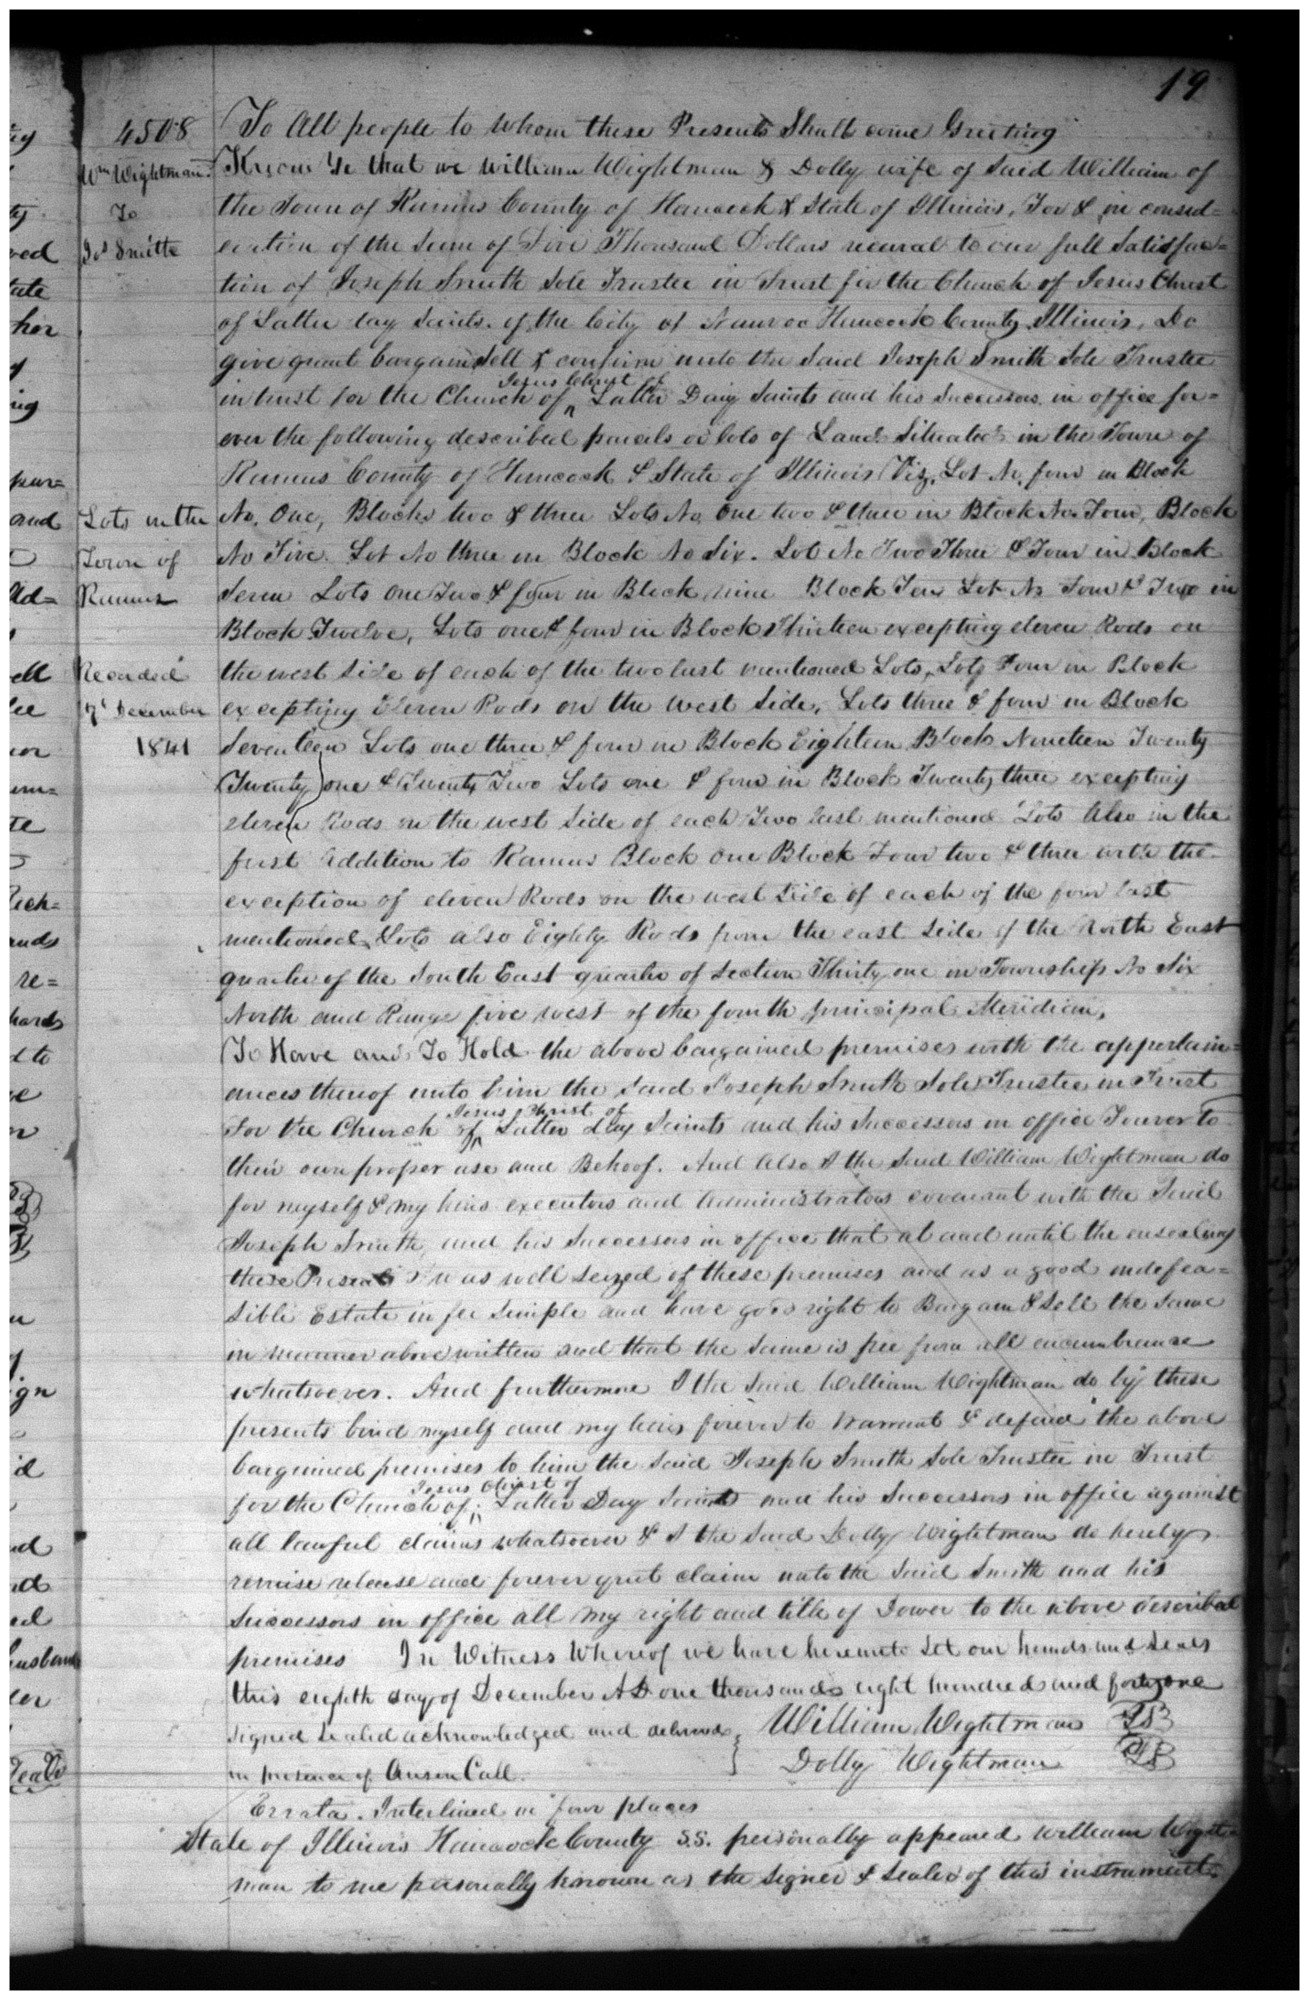 19
4508
Wm Wightman
To
Jos Smith
Lots in the
Town of
Ramus
Recorded
17th December
1841
To All people to whom these Presents Shall come Greeting
Know Ye that we William Wightman & Dolly wife of Said William of
the Town of Ramus County of Hancock & State of Illinois, For & in consid=
eration of the Sum of Five Thousand Dollars received to our full Satisfac=
tion of Joseph Smith Sole Trustee in Trust for the Church of Jesus Christ
of Latter day Saints of the City of Nauvoo Hancock County Illinois, Do
give grant bargain Sell & confirm unto the Said Joseph Smith Sole Trustee
in trust for the Church of Jesus Christ of Latter Day Saints and his Successors in office for=
ever the following described parcels or lots of Land Situated in the Town of
Ramus County of Hancock & State of Illinois (Viz, Lot No. four in Block
No. One, Blocks two & three Lots No One two & three in Block No Four, Block
No Five Lot No three in Block No Six. Lot No Two Three & Four in Block
Seven Lots One Two & four in Block nine Block Ten Lot No Four & Two in
Block Twelve, Lots one & four in Block Thirteen excepting eleven Rods on
the west Side of each of the two last mentioned Lots, Lots Four in Block
excepting Eleven Rods on the west Side, Lots three & four in Block
Seventeen Lots one three & four in Block Eighteen Block Nineteen Twenty
Twenty one & Twenty Two Lots one & four in Block Twenty three excepting
eleven Rods on the west Side of each Two last mentioned Lots Also in the
first Addition to Ramus Block One Block Four two & three with the
exception of eleven Rods on the west Side of each of the four last
mentioned Lots also Eighty Rods from the east Side of the North East
quarter of the South East quarter of Section Thirty one in Township No Six
North and Range five west of the fourth principal Meridian.
To Have and To Hold the above bargained premises with the appertain=
ances thereof unto him the Said Joseph Smith Sole Trustee in Trust
For the Church of Jesus Christ of Latter day Saints and his Successors in office Forever to
their own proper use and Behoof. And Also I the Said William Wightman do
for myself & my heirs executors and Administrators covenant with the Said
Joseph Smith, and his Successors in office that at and until the ensealing
these Presents I was well Seized of these premises and as a good indefea=
sible Estate in fee Simple and have good right to Bargain & Sell the Same
in manner above written and that the Same is free from all encumbrance
whatsoever. And furthermore I the Said William Wightman do by these
presents bind myself and my heirs forever to Warrant & defend the above
bargained premises to him the Said Joseph Smith Sole Trustee in Trust
for the Church of Jesus Christ of Latter Day Saints and his Successors in office against
all lawful claims whatsoever & I the Said Dolly Wightman do hereby
remise release and forever quit claim unto the Said Smith and his
Successors in office all my right and title of Dower to the above described
premises In Witness Whereof we have hereunto Set our hands and Seals
this eighth day of December AD one thousand eight hundred and forty one
Signed Sealed acknowledged and delivered William Wightman LS
in presence of Anson Call. Dolly Wightman LS
Errata. Interlined in four places
State of Illinois Hancock County S.S. personally appeared William Wight=
man to me personally known as the Signer & Sealer of this instrument